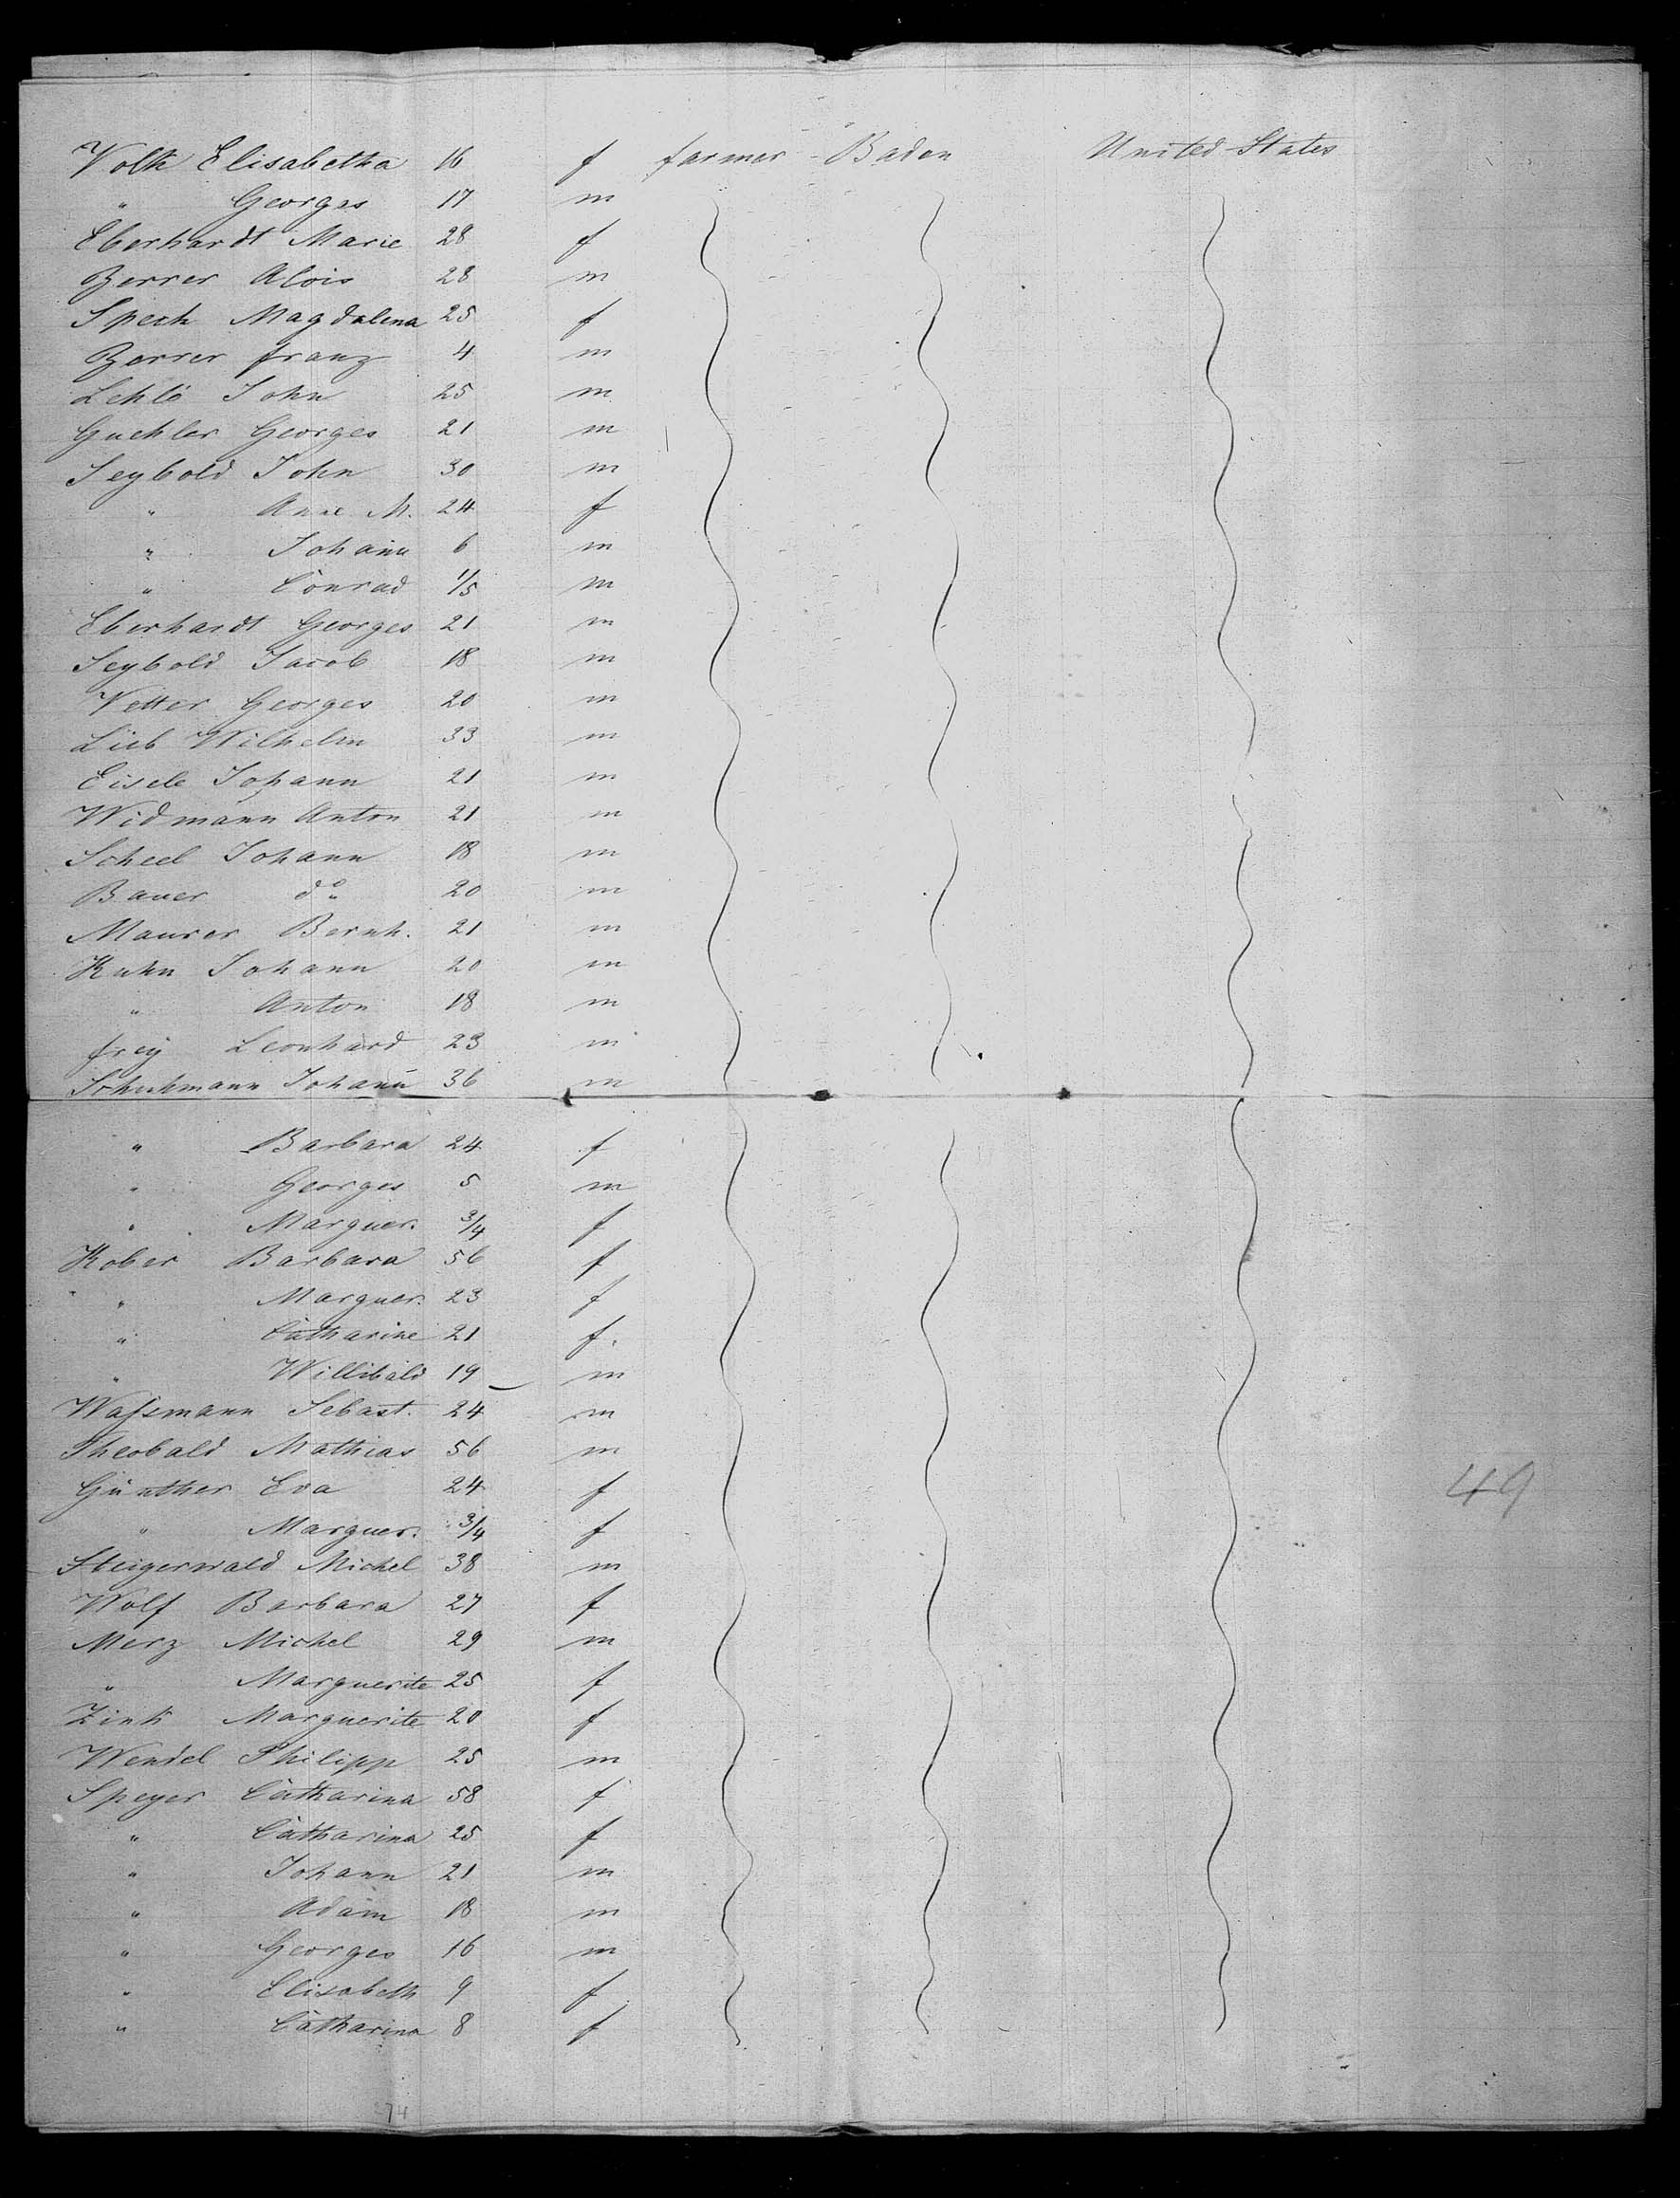 Volk Elisabetha 16 f farmer Baden United States
" Georges 17 m
Eberhardt Marie 28 f
Berrer Alois 28 m
Spech Magdalena 25 f
Berrer franz 4 m
Lehlé John 25 m
Guehler Georges 21 m
Seybold John 30 m
" Anne M. 24 f
" Johann 6 m
" Conrad 1/5 m
Eberhardt Georges 21 m
Seybold Jacob 18 m
Vetter Georges 20 m
Lieb Wilhelm 33 m
Eisele Johann 21 m
Widmann Anton 21 m
Scheel Johann 18 m
Bauer do 20 m
Maurer Bernh. 21 m
Kuhn Johann 20 m
" Anton 18 m
frey Leonhard 23 m
Schuhmann Johann 36 m
" Barbara 24 f
" Georges 5 m
" Marguer. 3/4 f
Kober Barbara 56 f
" Marguer. 23 f
" Catharine 21 f.
" Willibald 19 m
Waßmann Sebast. 24 m
Theobald Mathias 56 m
Günther Eva 24 f
" Marguer. 3/4 f
49
Steigerwald Michel 38 m
Wolf Barbara 27 f
Merz Michel 29 m
" Marguerite 25 f
Zink Marguerite 20 f
Wendel Philipp 25 m
Speyer Catharina 58 f
" Catharina 25 f
" Johann 21 m
" Adam 18 m
" Georges 16 m
" Elisabeth 9 f
" Catharina 8 f
74